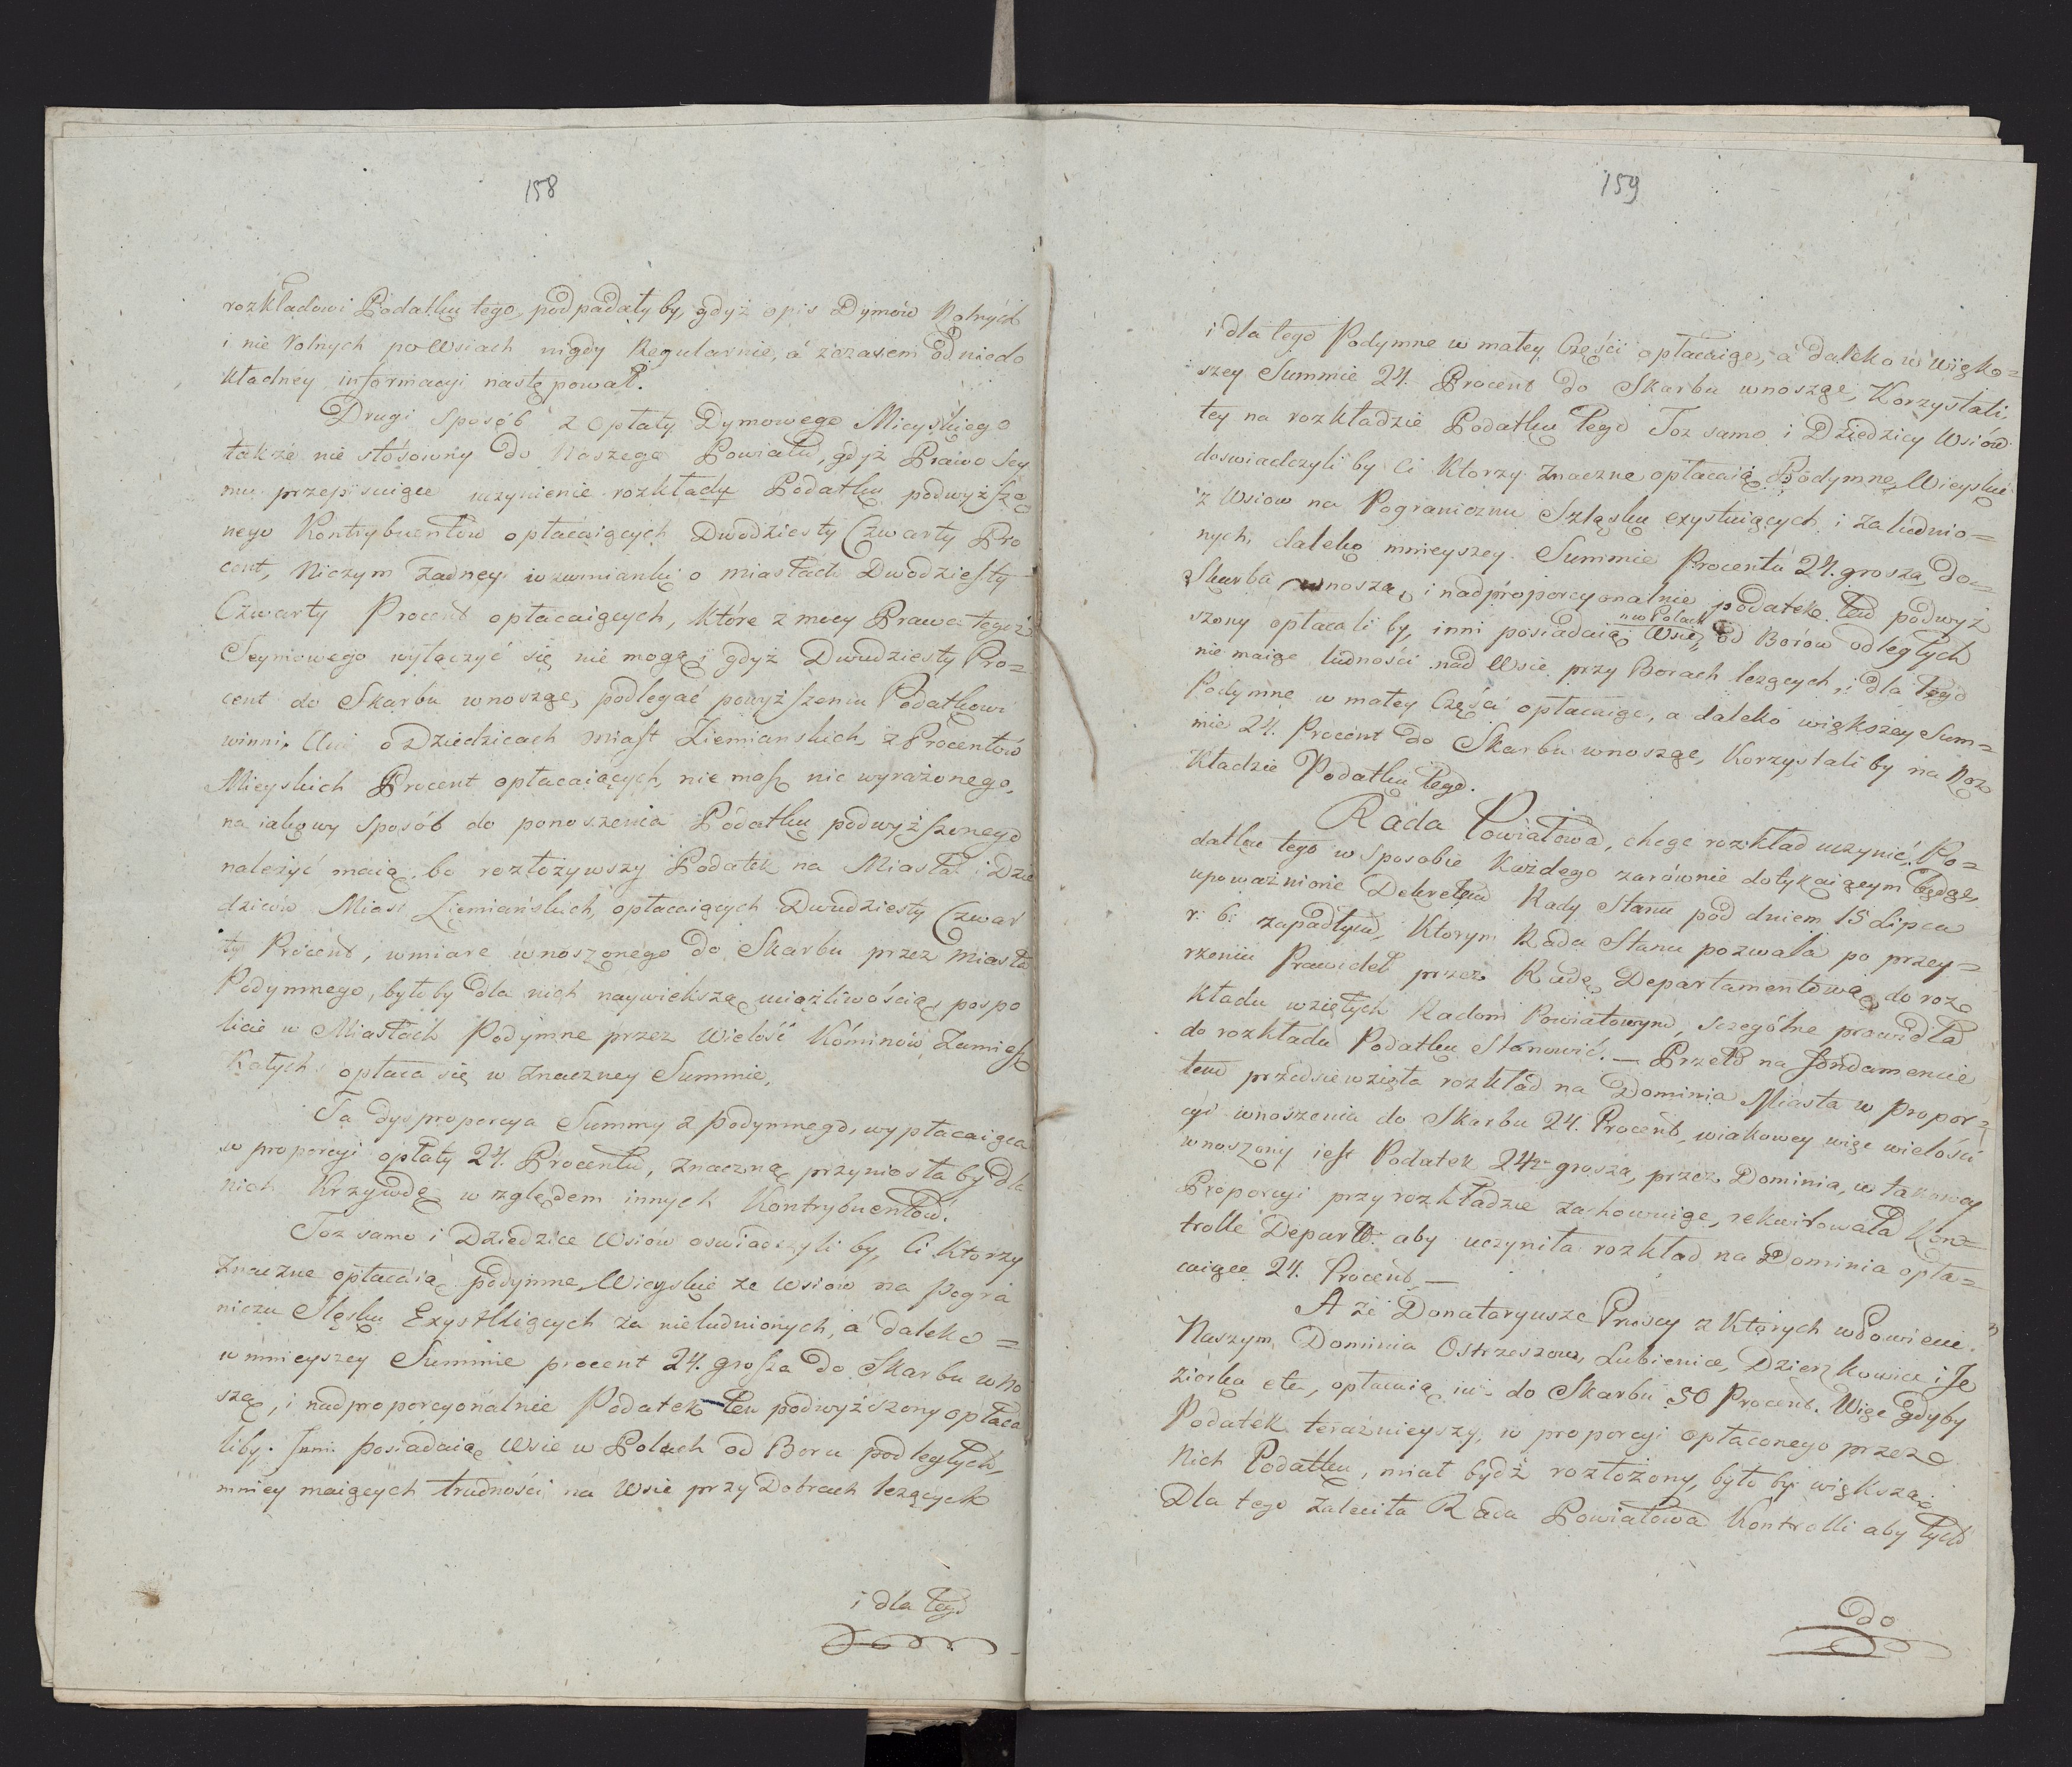 158
rozkładowi Podatku tego, podpadały by, gdyż opis Dymów Rolnych
i nie Rolnych po Wsiach nigdy Regularnie, á zczasem od niedo
kładney informacyi następował.
Drugi Sposób z Opłaty Dymowego Mieyskiego
także nie stósowny do Naszego Powiatu, gdyż Prawo Sey
mu przepisuiące uczynienie rozkładu Podatku podwyższo
nego Kontrybuentów opłacaiących Dwódziesty Czwarty Pro
cent, Niczym żadney wzmianki o miastach Dwódziesty
Czwarty Procent opłacaiących, które z mocy Prawa tegoż
Seymowego wyłączyć się nie mogą i gdyż Dwudziesty Pro=
cent do Skarbu wnosząc, podlegać powyższeniu Podatkowi
winni. Ani o Dziedzicach Miast Ziemianskich, z Procentów
Mieyskich Procent opłacaiących, nie masz nic wyrażonego,
na iakowy Sposób do ponoszenia Podatku podwyższonego
należyć maią, bo rozłożywszy Podatek na Miasta i Dzie
dziców Miast Ziemiańskich, opłacaiących Dwudziesty Czwar
ty Procent, wmiarę wnoszonego do Skarbu przez Miasta
Podymnego, było by dla nich naywiększą uciążliwością, pospo
licie w Miastach Podymne przez Wielość Kóminów Zamiesz
kałych opłaca się w Znaczney Summie,
Ta dysproporcya Summy z podymnego, wypłacaiąca
w proporcyi opłaty 24. Procentu, znaczną przyniosła by dla
nich Krzywdę względem innych Kontrybuentów.
Toz samo i Dziedzice Wsiów oswiadczyli by, Ci Ktorzy
Znaczne opłacaią podymne, Wieyskie ze Wsiow na Pogra
niczu Slęsku Exystuiących za nieludnionych, á daleko=
w mnieyszey Summie procent 24. grosza do Skarbu wno
szą, i nadproporcyonalnie Podatek ten podwyższony opłaca
liby. Inni posiadaią Wsie w Polach od Boru podległych,
mniey maiących trudności na Wsie przy Dobrach leżących
i dla tego
159
i dla tego Podymne w małey Części opłacaiąc, á daleko w więko=
szey Summie 24. Procent do Skarbu wnosząc, Korzystali
tey na rozkładzie Podatku tego Toz samo i Dziedzicy Wsiów
doswiadczyli by Ci Ktorzy Znaczne opłacaią Podymne, Wieyskie
z Wsiow na Pograniczu Szląsku exystuiących i zaludnio=
nych, daleko mnieyszey Summie Procentu 24. grosza, do=
Skarbu wnoszą, i nadproporcyonalnie podatek ten podwyż
szony opłacali by, inni posiadaią Wsie, "w Polach od Borów odległych
nie maiąc ludności nad Wsie przy Borach leżących, i dla tego
Podymne w małey Części opłacaiąc, a daleko większey Sum=
mie 24. Procent do Skarbu wnosząc, Korzystali by na Roz
kładzie Podatku tego.
Rada Powiatowa, chcąc rozkład uczynić Po=
datku tego w Sposobie Każdego zarównie dotykaiącym będąc,
upoważnione Dekretem Rady Stanu pod dniem 15 Lipca
r: b: zapadłym, Ktorym Rada Stanu pozwala po przey=
rzeniu Prawideł przez Radę Departamentową do roz
kładu wziętych Radom Powiatowym, sczególne prawidła
do rozkładu Podatku stanowić. — Przeto na fundamencie
tem przedsiewzięła rozkład na Dominia Miasta w propor=
cyi wnoszenia do Skarbu 24. Procent, wiakowey więc wielości
wnoszony iest Podatek 24go grosza, przez Dominia, w takowey
Proporcyi przy rozkładzie zachowuiąc, rekwirowała Kon=
trolle Departt: aby uczyniła rozkład na Dominia opła=
caiące 24. Procent, —
A że Donataryusze Pruscy z których wPowiecie
Naszym Dominia Ostrzeszow, Lubienice, Dzierzkowice i Je
ziorka etc, opłacaią iuż do Skarbu 50 Procent. Więc gdyby
Podatek teraznieyszy, w proporcyi opłaconego przez
Nich Podatku, miał bydź rozłożony, było by większą
Dla tego Zaleciła Rada Powiatowa Kontrolli aby tych
do